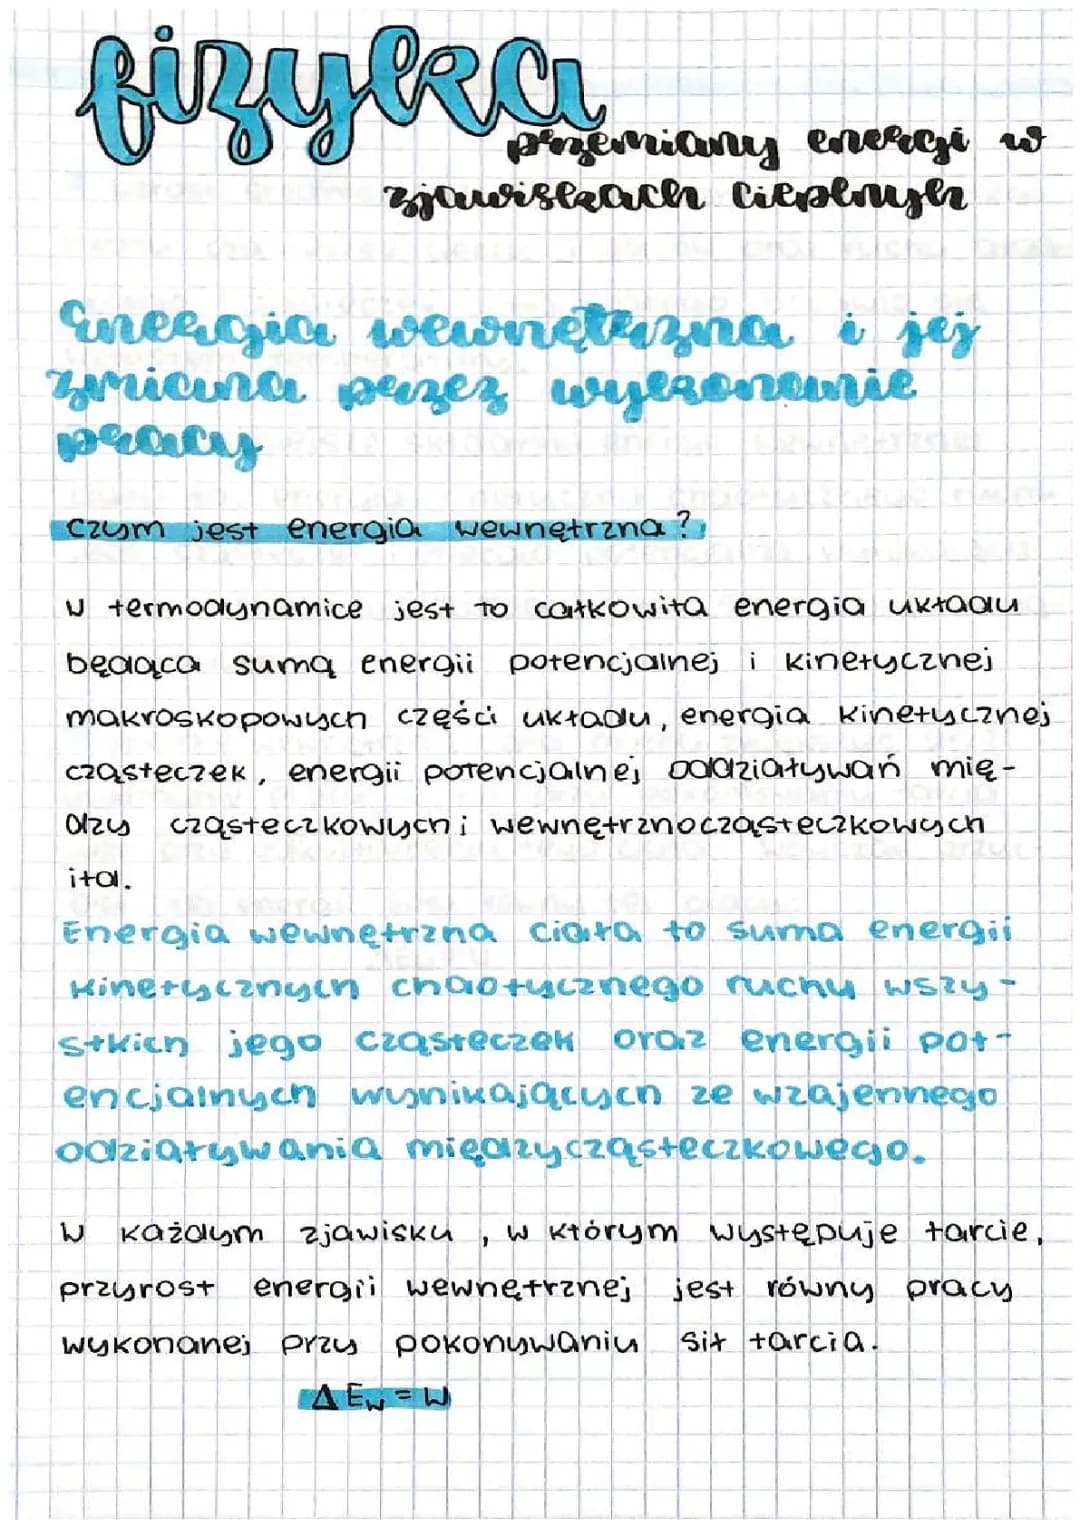 fizyka
przemiany energi w
zjawiskach cieplnych
Energia wewnętrzna i jej
zmiana przez wykonanie
pracy
czym jest energia wewnętrzna?
W termodynamice jest to całkowita energia układu
będąca sumą energii potencjalnej i kinetycznej
makroskopowych części układu, energia kinetycznej
cząsteczek, energii potencjalnej oddziaływań mię-
dzy cząsteczkowych i wewnętrznocząsteczkowych
itd.
Energia wewnętrzna ciała to suma energii
kinetycznych chaotycznego ruchu wszy-
stkich jego cząsteczek oraz energii pot-
encjalnych wynikających ze wzajemnego
odziaływania międzycząsteczkowego.
W każdym zjawisku, w którym występuje tarcie,
przyrost energii wewnętrznej jest równy pracy
wykonanej przy pokonywaniu sił tarcia.
Δ Ew = W